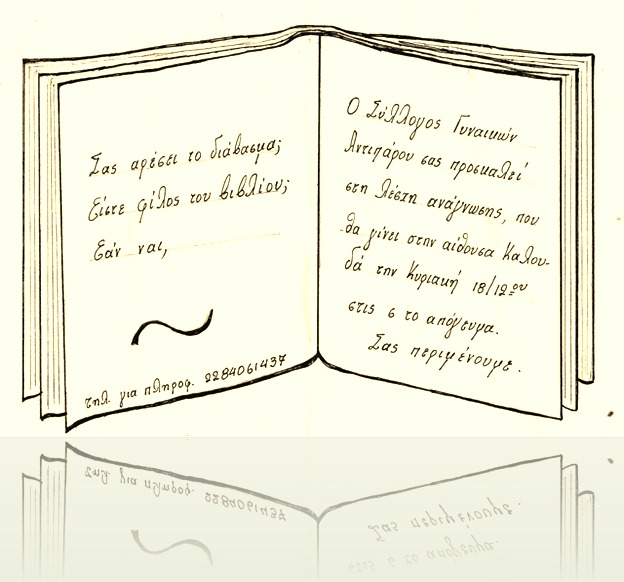 Σας αρέσει το διάβασμα;
Είστε φίλος του βιβλίου;
Εάν ναι,
τηλ. για πληροφ. 2284061437
Ο Σύλλογος Γυναικών
Αντιπάρου σας προσκαλεί
στη λέσχη ανάγνωσης, που
θα γίνει στην αίθουσα Καλου-
δά την Κυριακή 18/12ου
στις 5 το απόγευμα.
Σας περιμένουμε.